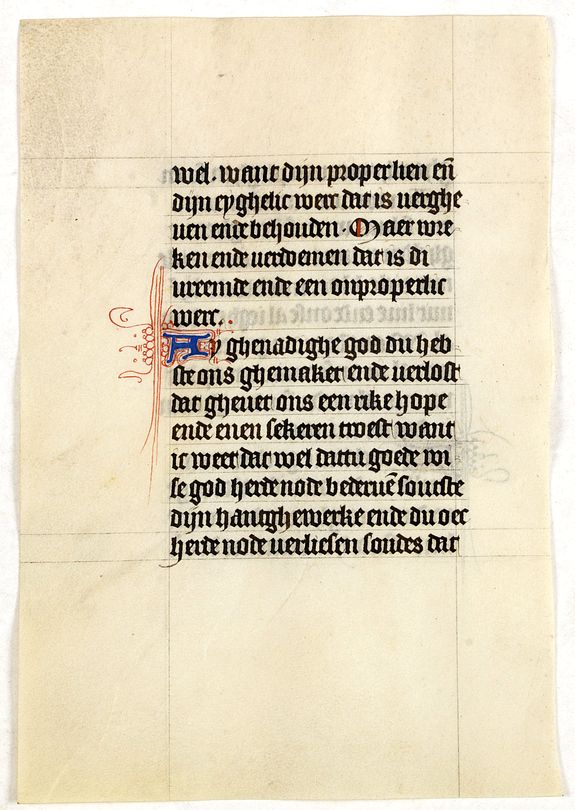 wel. want dijn properlien en̄
dijn eyghelic werc dat is verghe
uen ende behouden. Maer wre
ken ende verdoemen dat is di
vreemde ende een onproperlic
werc.
Ay ghenadighe god du heb
ste ons ghemaket ende verlost
dat gheuet ons een rike hope
ende enen sekeren troest want
ic weet dat wel dattu goede wi
se god herde node bederuē soutste
dijn hantghewerke ende du oec
herde node verliesen soudes dat